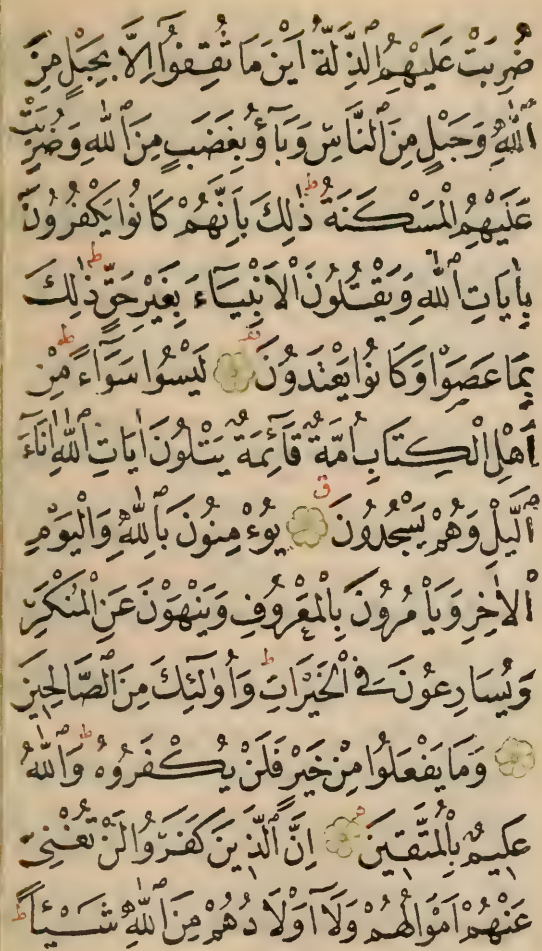 ضُرِبَتْ عَلَيْهِمُ الذِّلَّةُ اَيْنَ مَا ثُقِفُوا اِلَّا بِحَبْلٍ مِنَ
اللّٰهِ وَحَبْلٍ مِنَ النَّاسِ وَبَآؤُ بِغَضَبٍ مِنَ اللّٰهِ وَضُرِبَتْ
عَلَيْهِمُ الْمَسْكَنَةُ ط ذٰلِكَ بِاَنَّهُمْ كَانُوا يَكْفُرُونَ
بِاٰيَاتِ اللّٰهِ وَيَقْتُلُونَ الْاَنْبِيَآءَ بِغَيْرِ حَقٍّ ط ذٰلِكَ
بِمَا عَصَوْا وَكَانُوا يَعْتَدُونَ لَيْسُوا سَوَآءً ط مِنْ
اَهْلِ الْكِتَابِ اُمَّةٌ قَآئِمَةٌ يَتْلُونَ اٰيَاتِ اللّٰهِ اٰنَآءَ
الَّيْلِ وَهُمْ يَسْجُدُونَ ق يُؤْمِنُونَ بِاللّٰهِ وَالْيَوْمِ
الْاٰخِرِ وَيَأْمُرُونَ بِالْمَعْرُوفِ وَيَنْهَوْنَ عَنِ الْمُنْكَرِ
وَيُسَارِعُونَ فِي الْخَيْرَاتِ ط وَاُولٰٓئِكَ مِنَ الصَّالِحِينَ
وَمَا يَفْعَلُوا مِنْ خَيْرٍ فَلَنْ يُكْفَرُوهُ ط وَاللّٰهُ
عَلِيمٌ بِالْمُتَّقِينَ اِنَّ الَّذِينَ كَفَرُوا لَنْ تُغْنِيَ
عَنْهُمْ اَمْوَالُهُمْ وَلَآ اَوْلَادُهُمْ مِنَ اللّٰهِ شَيْئًا ط